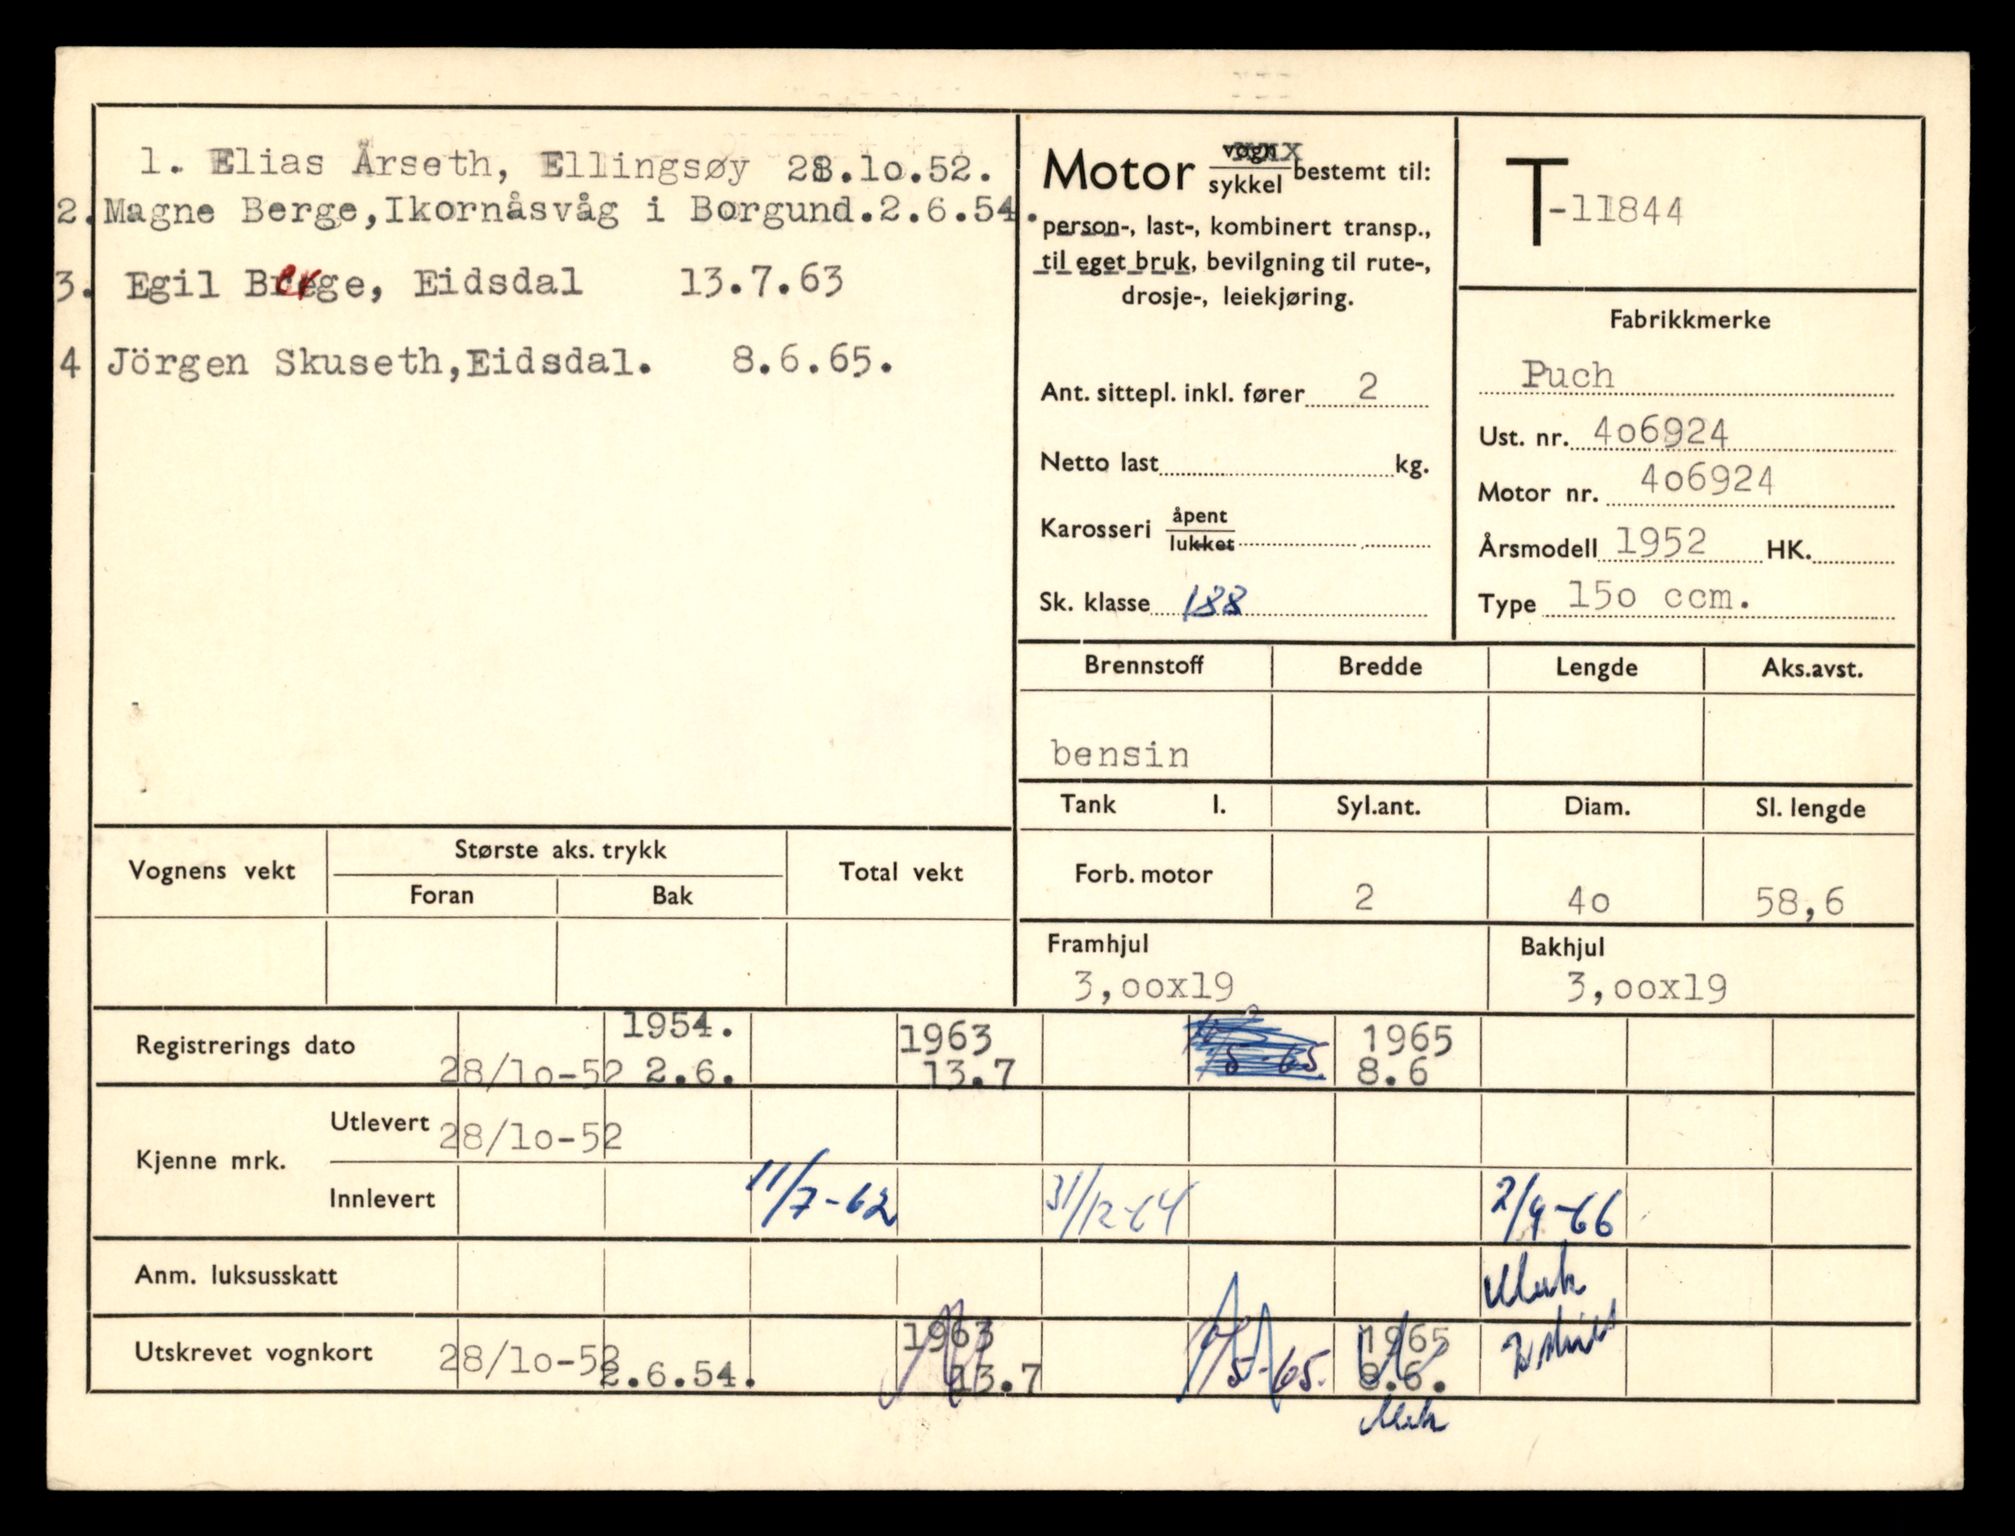 1. Elias Årseth, Ellingsøy 28.10.52.
2. Magne Berge, Ikornåsvåg i Borgund. 2.6.54.
3. Egil Berge, Eidsdal 13.7.63
4 Jörgen Skuseth, Eidsdal. 8.6.65.
Motor vogn sykkel bestemt til:
person-, last-, kombinert transp.,
til eget bruk, bevilgning til rute-,
drosje-, leiekjøring.
Ant. sittepl. inkl. fører 2
Netto last kg.
Karosseri åpent lukket
Sk. klasse 188
T-11844
Fabrikkmerke
Puch
Ust. nr. 4o6924
Motor nr. 4o6924
Årsmodell 1952 HK.
Type 15o ccm.
Brennstoff Bredde Lengde Aks.avst.
bensin
Tank l. Syl.ant. Diam. Sl. lengde
Forb. motor 2 4o 58,6
Framhjul Bakhjul
3,oox19 3,oox19
Vognens vekt Største aks. trykk Total vekt
Foran Bak
1954. 1963 1965
Registrerings dato 28/1o-52 2.6. 13.7 /5-65 8.6
Kjenne mrk.
Utlevert 28/1o-52
Innlevert 11/7-62 31/12-64 2/9-66
Anm. luksusskatt
1963 1965
Utskrevet vognkort 28/1o-52 2.6.54. 13.7 /5-65. 8.6.